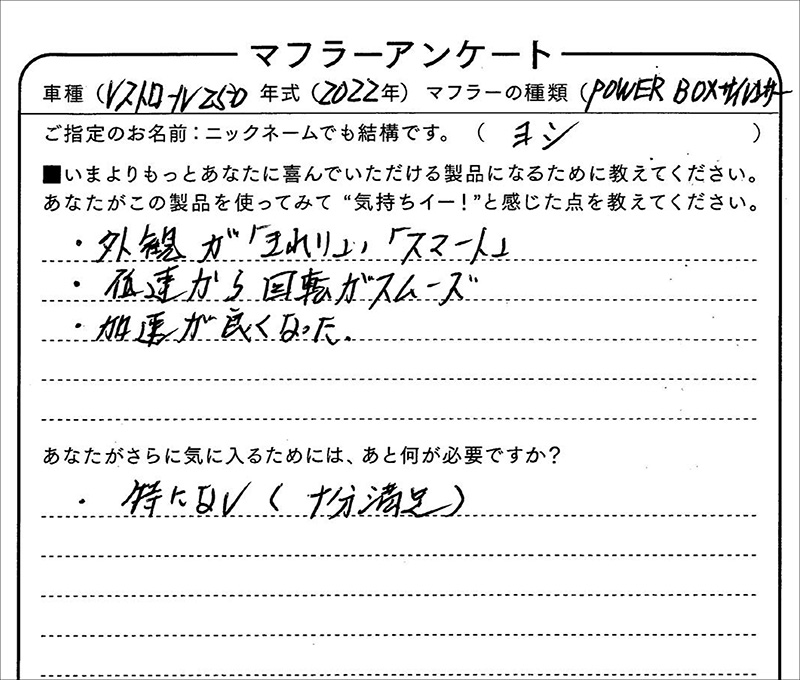 マフラーアンケート
車種（Vストローム250 年式（2022年）マフラーの種類（POWER BOXサイレンサー
ご指定のお名前：ニックネームでも結構です。（ ヨシ ）
■いまよりもっとあなたに喜んでいただける製品になるために教えてください。
あなたがこの製品を使ってみて “気持ちイー！”と感じた点を教えてください。
・外観が「きれい」，「スマート」
・低速から回転がスムーズ
・加速が良くなった.
あなたがさらに気に入るためには、あと何が必要ですか？
・特にない（十分満足）